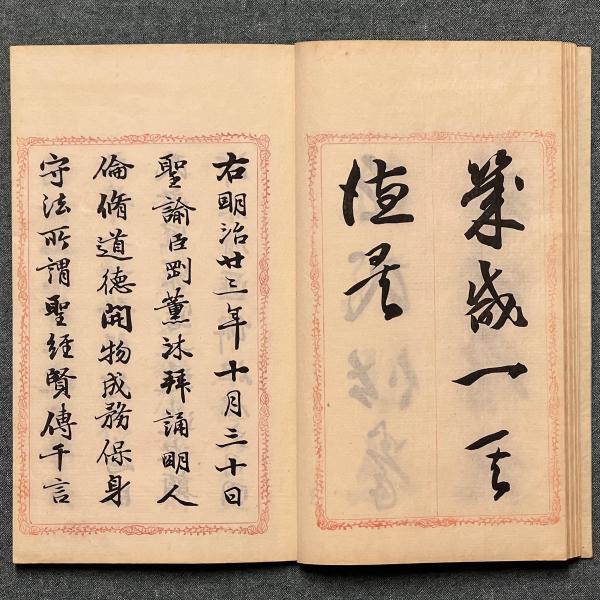 幾咸一其
德矣
右明治廿三年十月三十日
聖諭臣剛薰沐拜誦明人
倫脩道德開物成務保身
守法所謂聖經賢傳千言